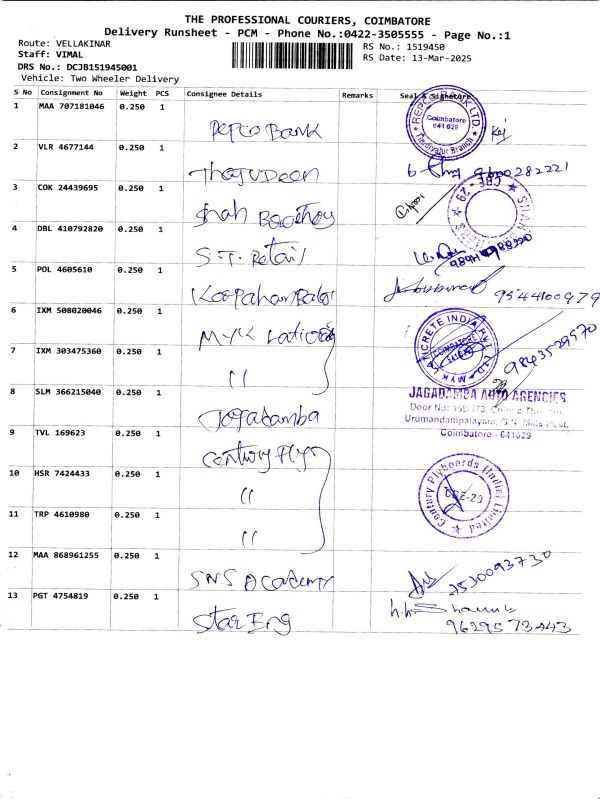 THE PROFESSIONAL COURIERS, COIMBATORE
Delivery Runsheet - PCM - Phone No.:0422-3505555 - Page No.:1
Route: VELLAKINAR
RS No.: 1519450
Staff: VIMAL
RS Date: 13-Mar-2025
DRS No.: DCJB151945001
Vehicle: Two Wheeler Delivery
S No Consignment No Weight PCS Consignee Details Remarks Seal & Signature
1 MAA 707181046 0.250 1
Repco Bank
REPCO BANK LTD. Coimbatore 641 029 Branch
2 VLR 4677144 0.250 1
Thajudeen
282221
3 COK 24439695 0.250 1
Shah Brothers
SHAH CBE - 29
4 DBL 410792820 0.250 1
S.T. Retail
5 POL 4605610 0.250 1
9544100979
6 IXM 508020046 0.250 1
MYK
MYK CONCRETE INDIA PVT. LTD. COIMBATORE
9843529570
7 IXM 303475360 0.250 1
"
8 SLM 366215040 0.250 1
Jagadamba
JAGADAMBA AUTO AGENCIES
Door No:
Urumandampalayam, G.N. Mills Post,
Coimbatore - 641029
9 TVL 169623 0.250 1
Century Plys
10 HSR 7424433 0.250 1
"
Century Plyboards (India) Limited CBE-29
11 TRP 4610980 0.250 1
"
12 MAA 868961255 0.250 1
SNS Academy
7530093730
13 PGT 4754819 0.250 1
Star Eng
9629573443